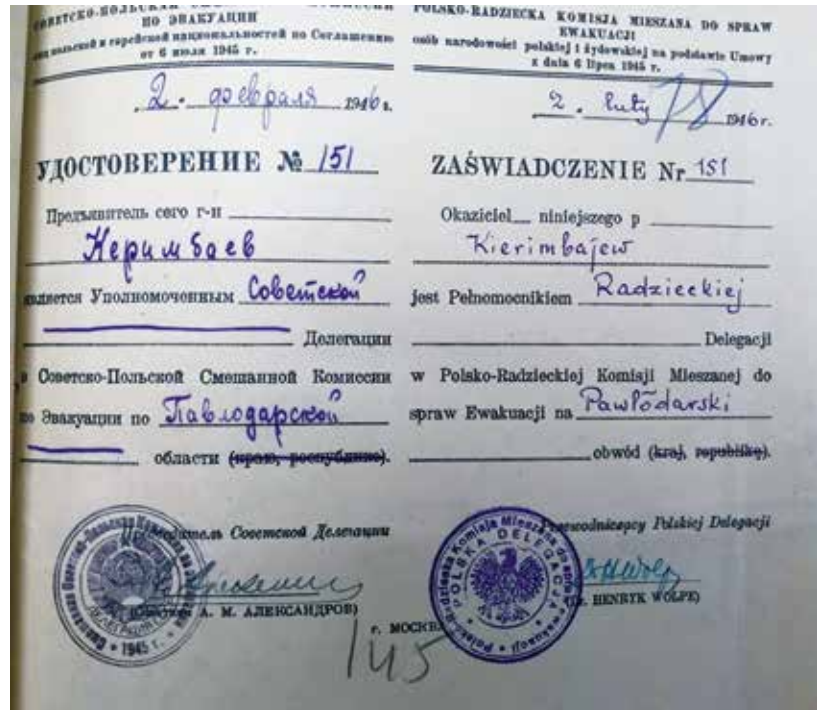 СОВЕТСКО-ПОЛЬСКАЯ КОМИССИИ
ПО ЭВАКУАЦИИ
польской и еврейской национальностей по Соглашению
от 6 июля 1945 г.
2. февраля 1946 г.
УДОСТОВЕРЕНИЕ № 151
Предъявитель сего г-н
Керимбаев
является Уполномоченным Советской
Делегации
в Советско-Польской Смешанной Комиссии
по Эвакуации по Павлодарской
области (краю, республике).
Председатель Советской Делегации
А. М. АЛЕКСАНДРОВ)
1945 г.
POLSKO-RADZIECKA KOMISJA MIESZANA DO SPRAW
EWAKUACJI
osób narodowości polskiej i żydowskiej na podstawie Umowy
z dnia 6 lipca 1945 r.
2. luty 1946r.
78
ZAŚWIADCZENIE Nr 151
Okaziciel niniejszego p
Kierimbajew
jest Pełnomocnikiem Radzieckiej
Delegacji
w Polsko-Radzieckiej Komisji Mieszanej do
spraw Ewakuacji na Pawłodarski
obwód (kraj, republikę).
Przewodniczący Polskiej Delegacji
POLSKA DELEGACJA
HENRYK WOLPE)
г. МОСКВА
145